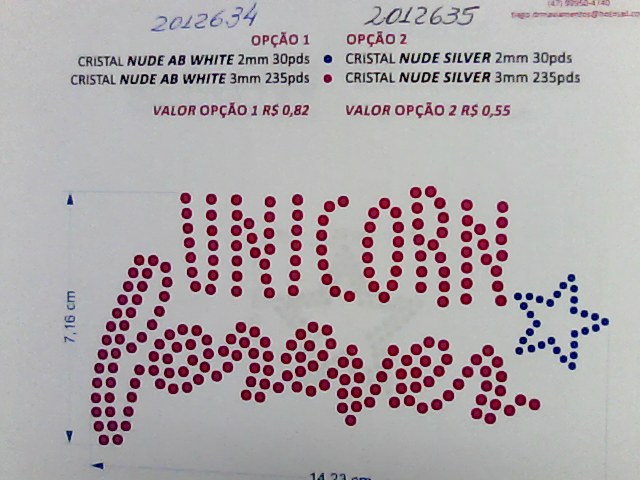 2012634 2012635
tiago.drmaviamentos@hotmail.com
OPÇÃO 1 OPÇÃO 2
CRISTAL NUDE AB WHITE 2mm 30pds ● CRISTAL NUDE SILVER 2mm 30pds
CRISTAL NUDE AB WHITE 3mm 235pds ● CRISTAL NUDE SILVER 3mm 235pds
VALOR OPÇÃO 1 R$ 0,82 VALOR OPÇÃO 2 R$ 0,55
UNICORN
forever
7,16 cm
14,23 cm